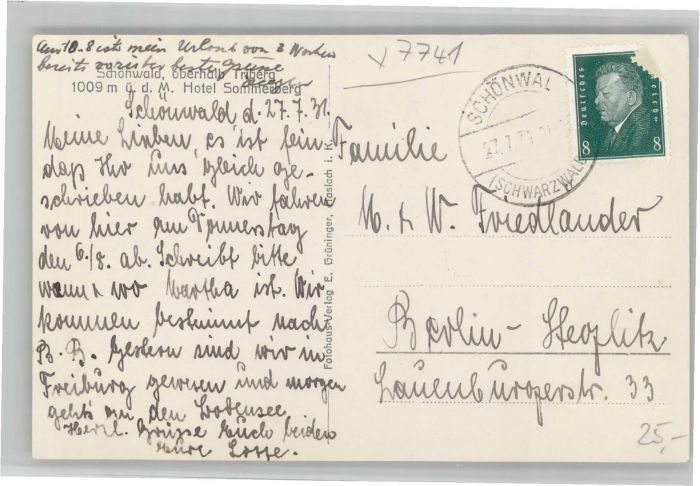 Am 10.8 ist mein Urlaub von 3 Wochen
bereits vorüber beste Grüsse
Schönwald, oberhalb Triberg
1009 m ü. d. M. Hotel Sommerberg
Schönwald d. 27.7.31.
Meine Lieben, es ist fein
daß Ihr uns gleich ge-
schrieben habt. Wir fahren
von hier am Donnerstag
den 6/8. ab. Schreibt bitte
wann & wo Martha ist. Wir
kommen bestimmt nach
B.-B. Gestern sind wir in
Freiburg gewesen und morgen
gehts an den Bodensee.
Herzl. Grüsse Euch beiden
Eure
Fotohaus-Verlag E. Grüninger, Haslach i. K.
7741
SCHÖNWALD
27.7.31
(SCHWARZWALD)
Deutsches Reich
8 8
Familie
M. & W. Friedlander
Berlin-Steglitz
Lauenburgerstr. 33
25,-